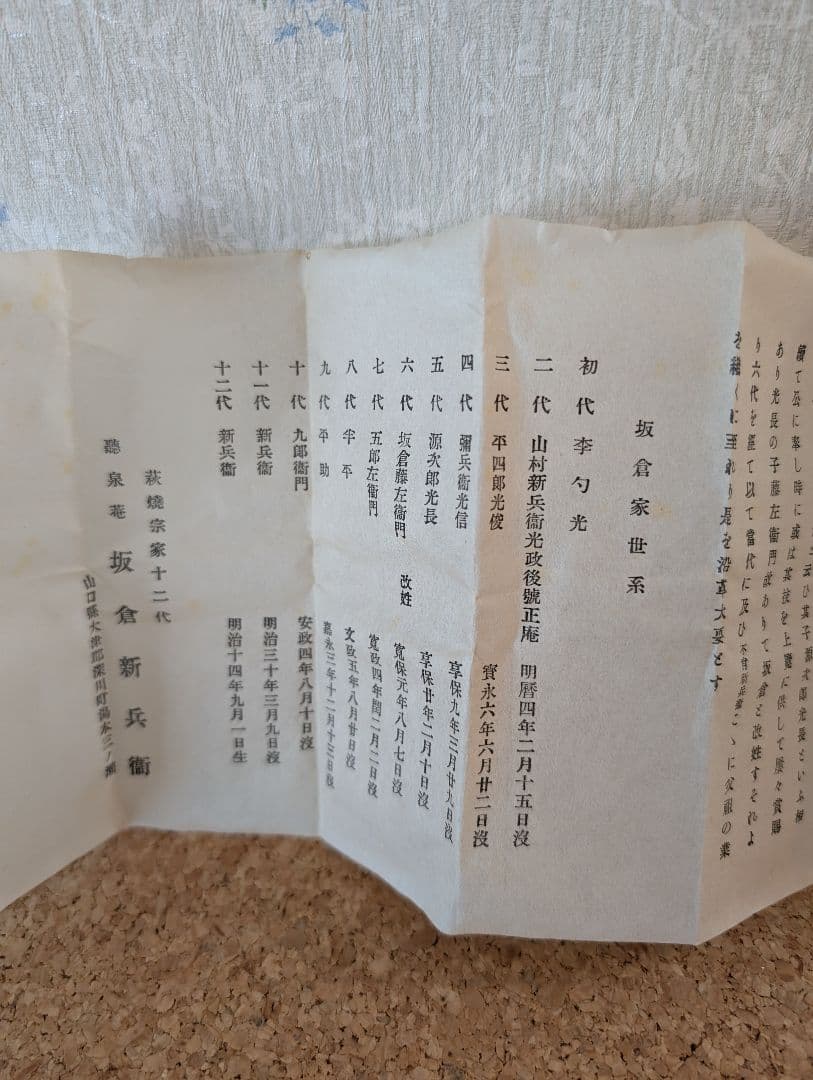 續て公に奉し時に或は其技を上覽に供して屢々賞賜
あり光長の子藤左衞門故ありて坂倉と改姓すそれよ
り六代を經て以て當代に及ひ不肖新兵衞こゝに父祖の業
を繼くに至れり是を沿革大要とす
坂倉家世系
初代 李勺光
二代 山村新兵衞光政後號正庵 明曆四年二月十五日沒
三代 平四郎光俊 寶永六年六月廿二日沒
四代 彌兵衞光信 享保九年三月廿九日沒
五代 源次郎光長 享保廿年二月十日沒
六代 坂倉藤左衞門 改姓 寬保元年八月七日沒
七代 五郎左衞門 寬政四年閏二月二日沒
八代 半平 文政五年八月廿日沒
九代 平助 嘉永三年十二月十三日沒
十代 九郎衞門 安政四年八月十日沒
十一代 新兵衞 明治三十年三月九日沒
十二代 新兵衞 明治十四年九月一日生
萩燒宗家十二代
聽泉菴 坂倉新兵衞
山口縣大津郡深川町湯本三ノ瀨